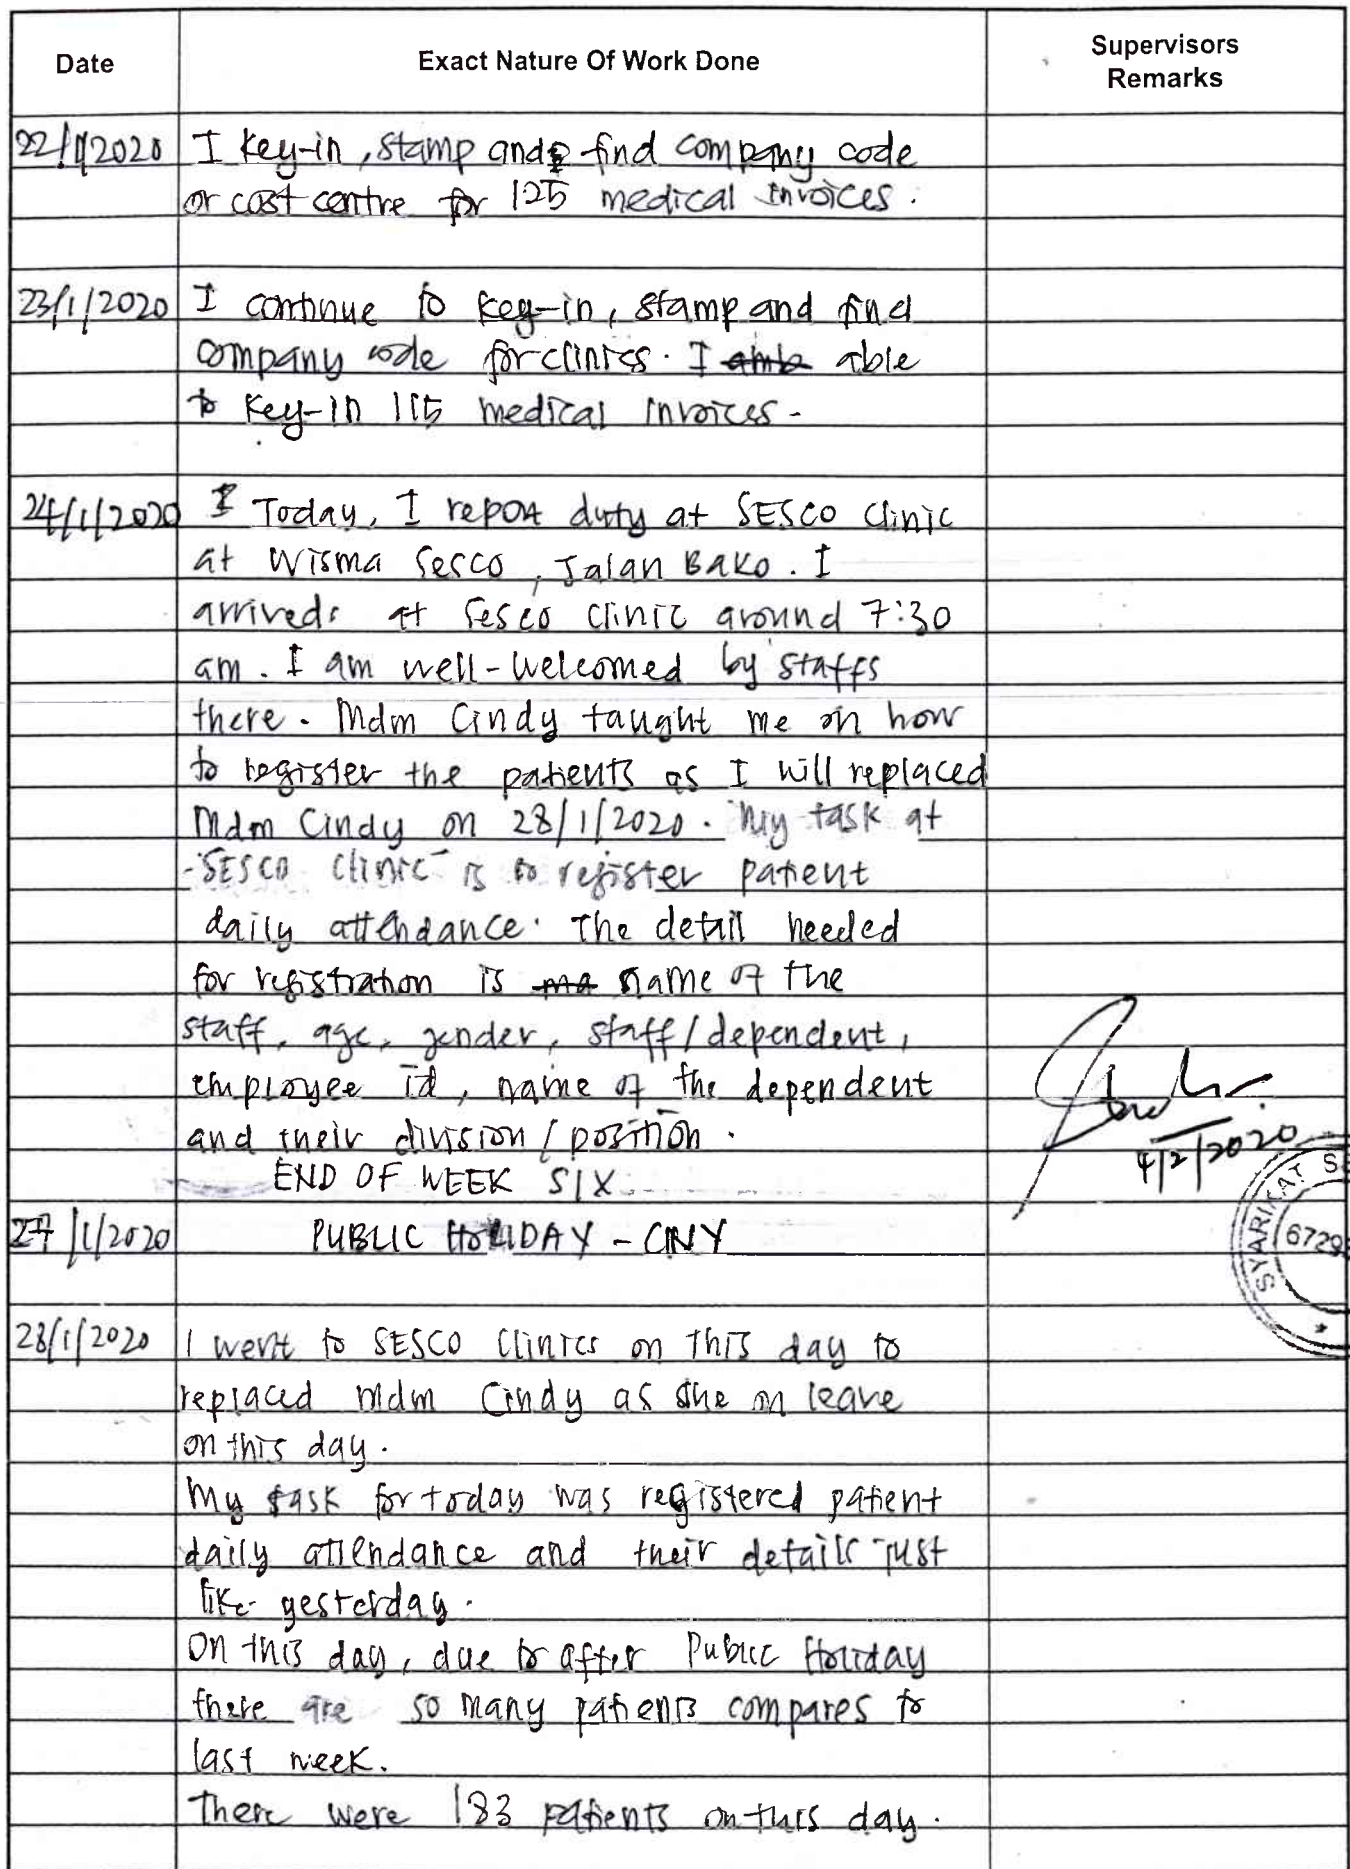 Date Exact Nature Of Work Done Supervisors
Remarks
22/1/2020 I key-in, stamp and find company code
or cost centre for 125 medical invoices.
23/1/2020 I continue to key-in, stamp and find
company code for clinics. I able
to key-in 115 medical invoices.
24/1/2020 Today, I report duty at SESCO Clinic
at Wisma Sesco, Jalan Bako. I
arrived at Sesco Clinic around 7:30
am. I am well-welcomed by staffs
there. Mdm Cindy taught me on how
to register the patients as I will replaced
Mdm Cindy on 28/1/2020. My task at
SESCO Clinic is to register patient
daily attendance. The detail needed
for registration is name of the
staff, age, gender, staff/dependent,
employee id, name of the dependent
and their division/position.
4/2/2020
END OF WEEK SIX
27/1/2020 PUBLIC HOLIDAY - CNY
SYARIKAT S
6729
28/1/2020 I went to SESCO Clinics on this day to
replaced Mdm Cindy as she on leave
on this day.
My task for today was registered patient
daily attendance and their details just
like yesterday.
On this day, due to after Public Holiday
there are so many patients compares to
last week.
There were 183 patients on this day.